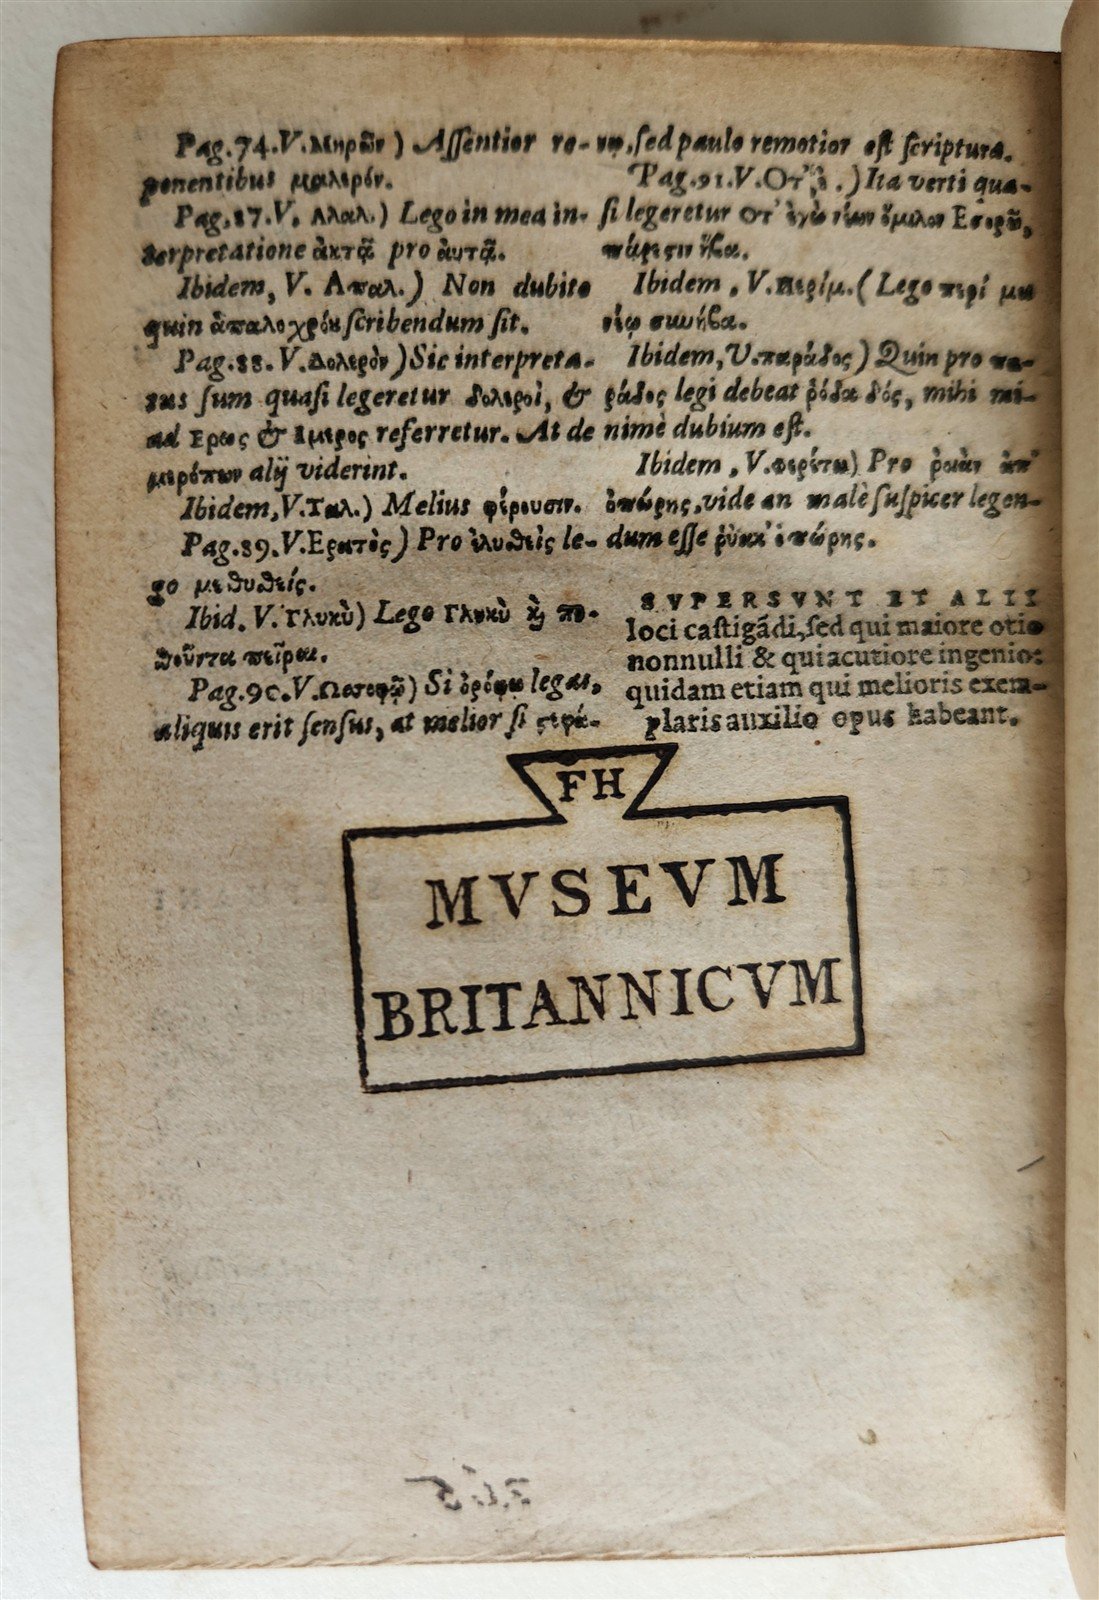 Pag. 74. V. Μηρῶν ) Aſſentior re-
ponentibus μαλερόν.
Pag. 87. V. Αλαλ.) Lego in mea in-
terpretatione ἀκτᾷ pro ἀυτᾷ.
Ibidem, V. Απαλ.) Non dubito
quin ἁπαλοχρόυ ſcribendum ſit.
Pag. 88. V. Δολερὸν) Sic interpreta-
tus ſum quaſi legeretur δολεροὶ, &
ad Ερως & Ιμερος referretur. At de
μερόπων alij viderint.
Ibidem, V. Ταλ.) Melius φέρουσιν.
Pag. 89. V. Ερατὸς) Pro ἐλυθεὶς le-
go μεθυθείς.
Ibid. V. Γλυκὺ) Lego Γλυκὺ κὶ πο-
θοῦντα πεῖραι.
Pag. 90. V. Si ὀρόφῳ legas,
aliquis erit ſenſus, at melior ſi ςεφά-
νῳ, ſed paulo remotior eſt ſcriptura.
Pag. 91. V. Ita verti qua-
ſi legeretur ὁτ' ἐγὼ νέων ὅμιλον Εσορῶ,
πάρεςιν ἥβα.
Ibidem, V. Περίμ. ( Lego περί με
νίῳ συνήβα.
Ibidem, V. παράδος) Quin pro πα-
ράδος legi debeat ῥόδα δός, mihi mi-
nimè dubium eſt.
Ibidem, V. φερέτω) Pro ῥοιὰν ἀπ'
ὀπώρης, vide an malè ſuſpicer legen-
dum eſſe ὀπώρης.
SVPERSVNT ET ALII
loci caſtigãdi, ſed qui maiore otio
nonnulli & qui acutiore ingenio:
quidam etiam qui melioris exem-
plaris auxilio opus habeant.
FH
MVSEVM
BRITANNICVM